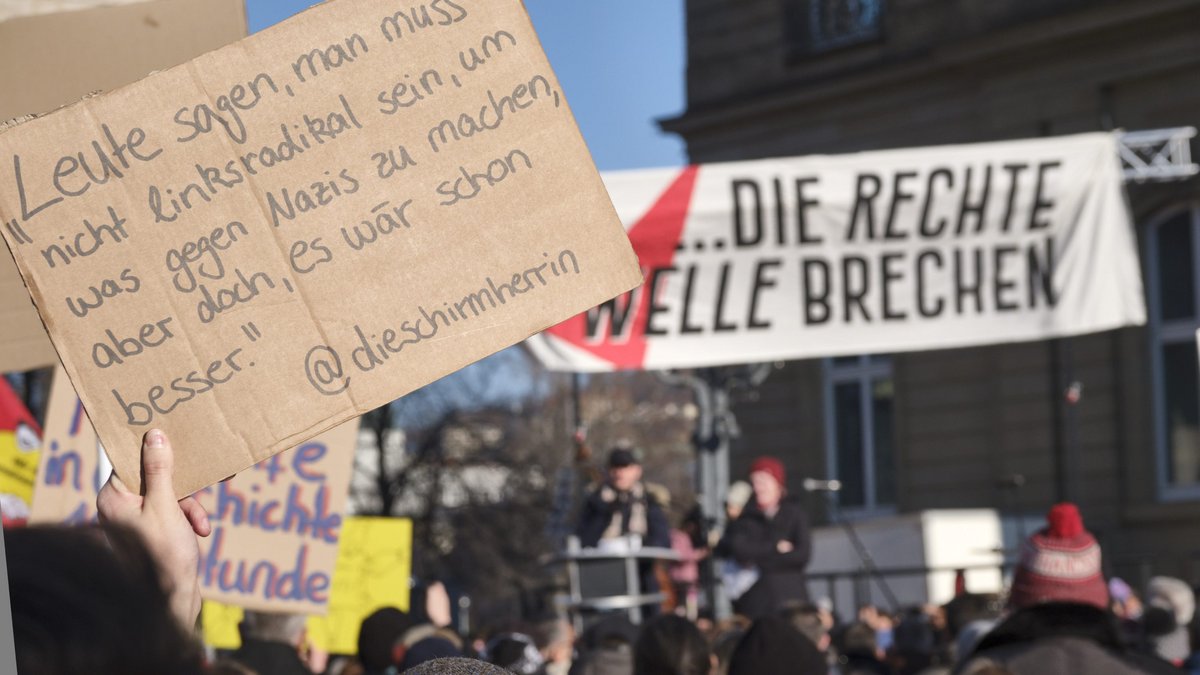 "Leute sagen, man muss
nicht linksradikal sein, um
was gegen Nazis zu machen,
aber doch, es wär schon
besser."
@dieschirmherrin
...DIE RECHTE
WELLE BRECHEN
in
chichte